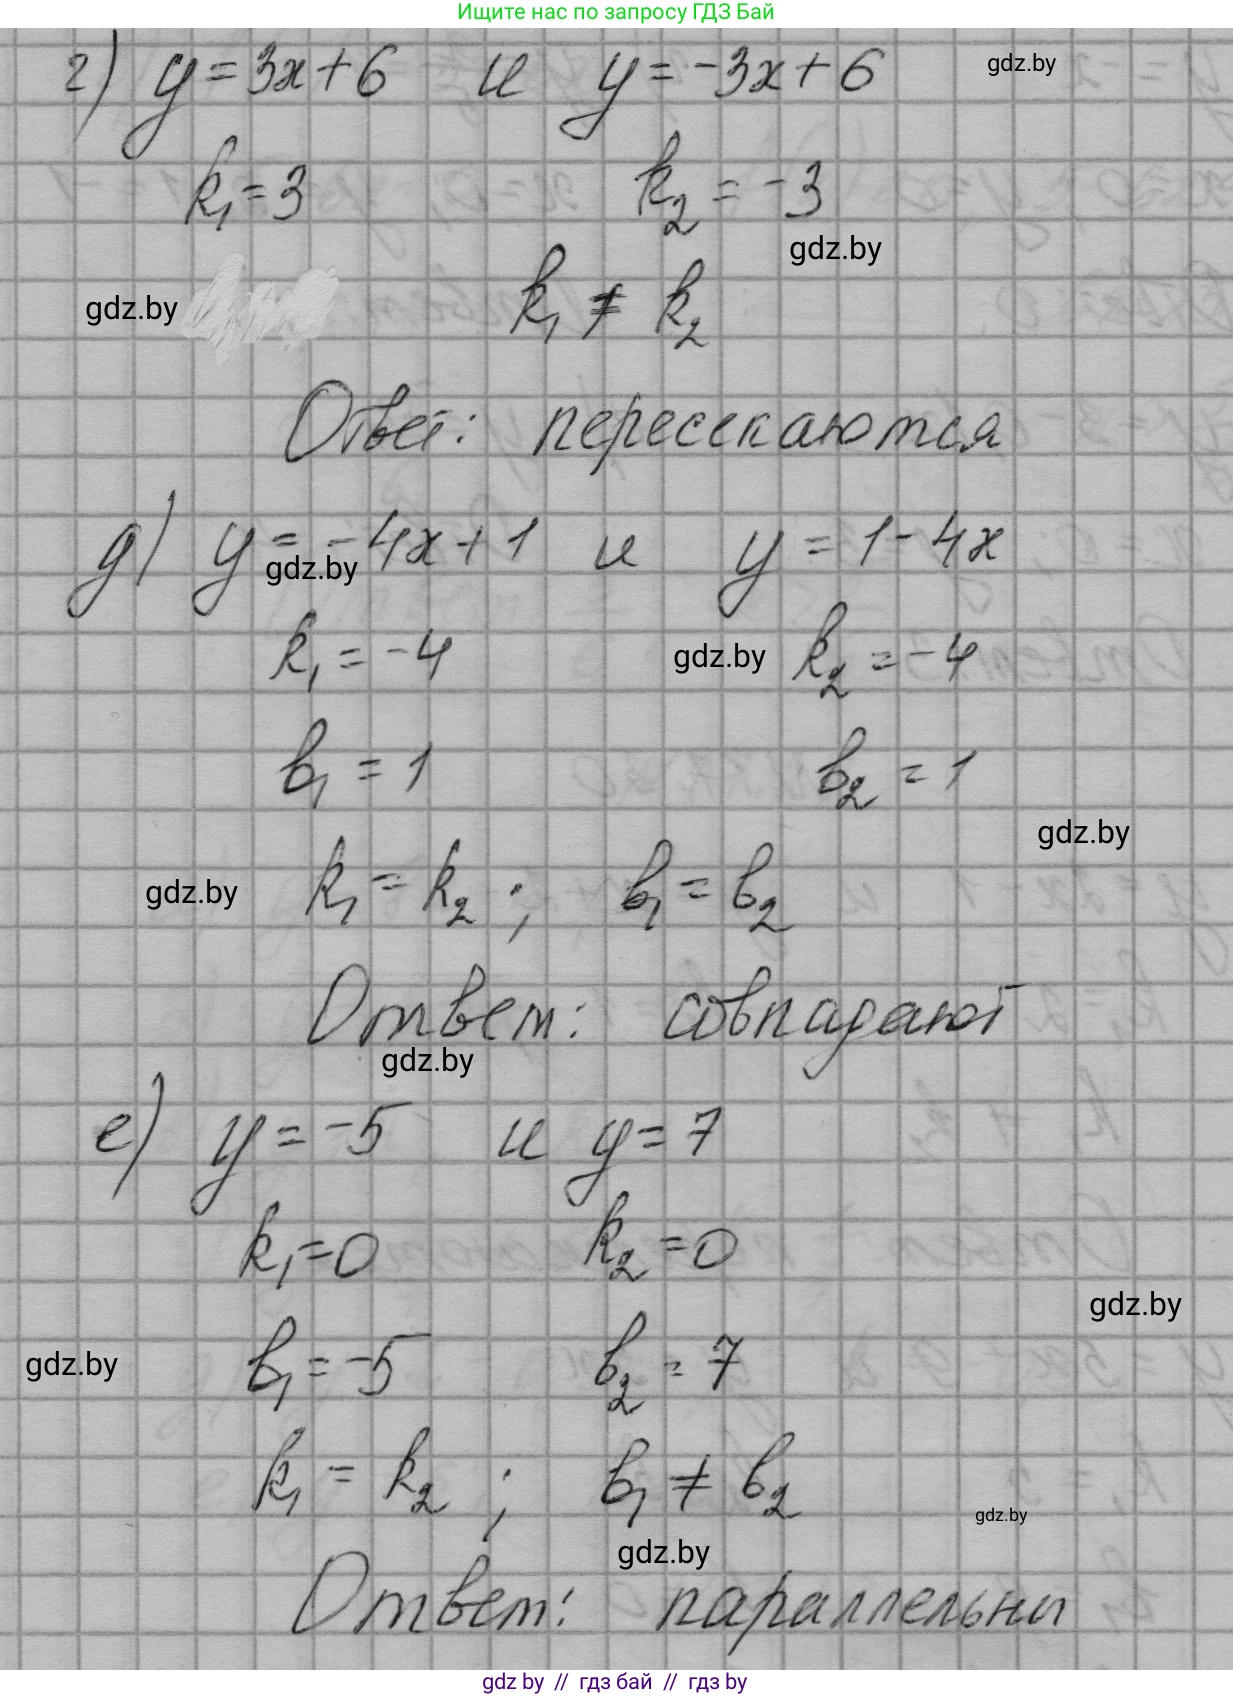 Ищите нас по запросу ГДЗ Бай
г) y = 3x + 6 и y = -3x + 6
gdz.by
k₁ = 3 k₂ = -3
gdz.by
gdz.by k₁ ≠ k₂
Ответ: пересекаются
д) y = -4x + 1 и y = 1 - 4x
gdz.by
k₁ = -4 gdz.by k₂ = -4
b₁ = 1 b₂ = 1
gdz.by
gdz.by k₁ = k₂ ; b₁ = b₂
Ответ: совпадают
gdz.by
е) y = -5 и y = 7
k₁ = 0 k₂ = 0
gdz.by
gdz.by b₁ = -5 b₂ = 7
k₁ = k₂ ; b₁ ≠ b₂
gdz.by
gdz.by
Ответ: параллельны
gdz by // гдз бай // gdz by